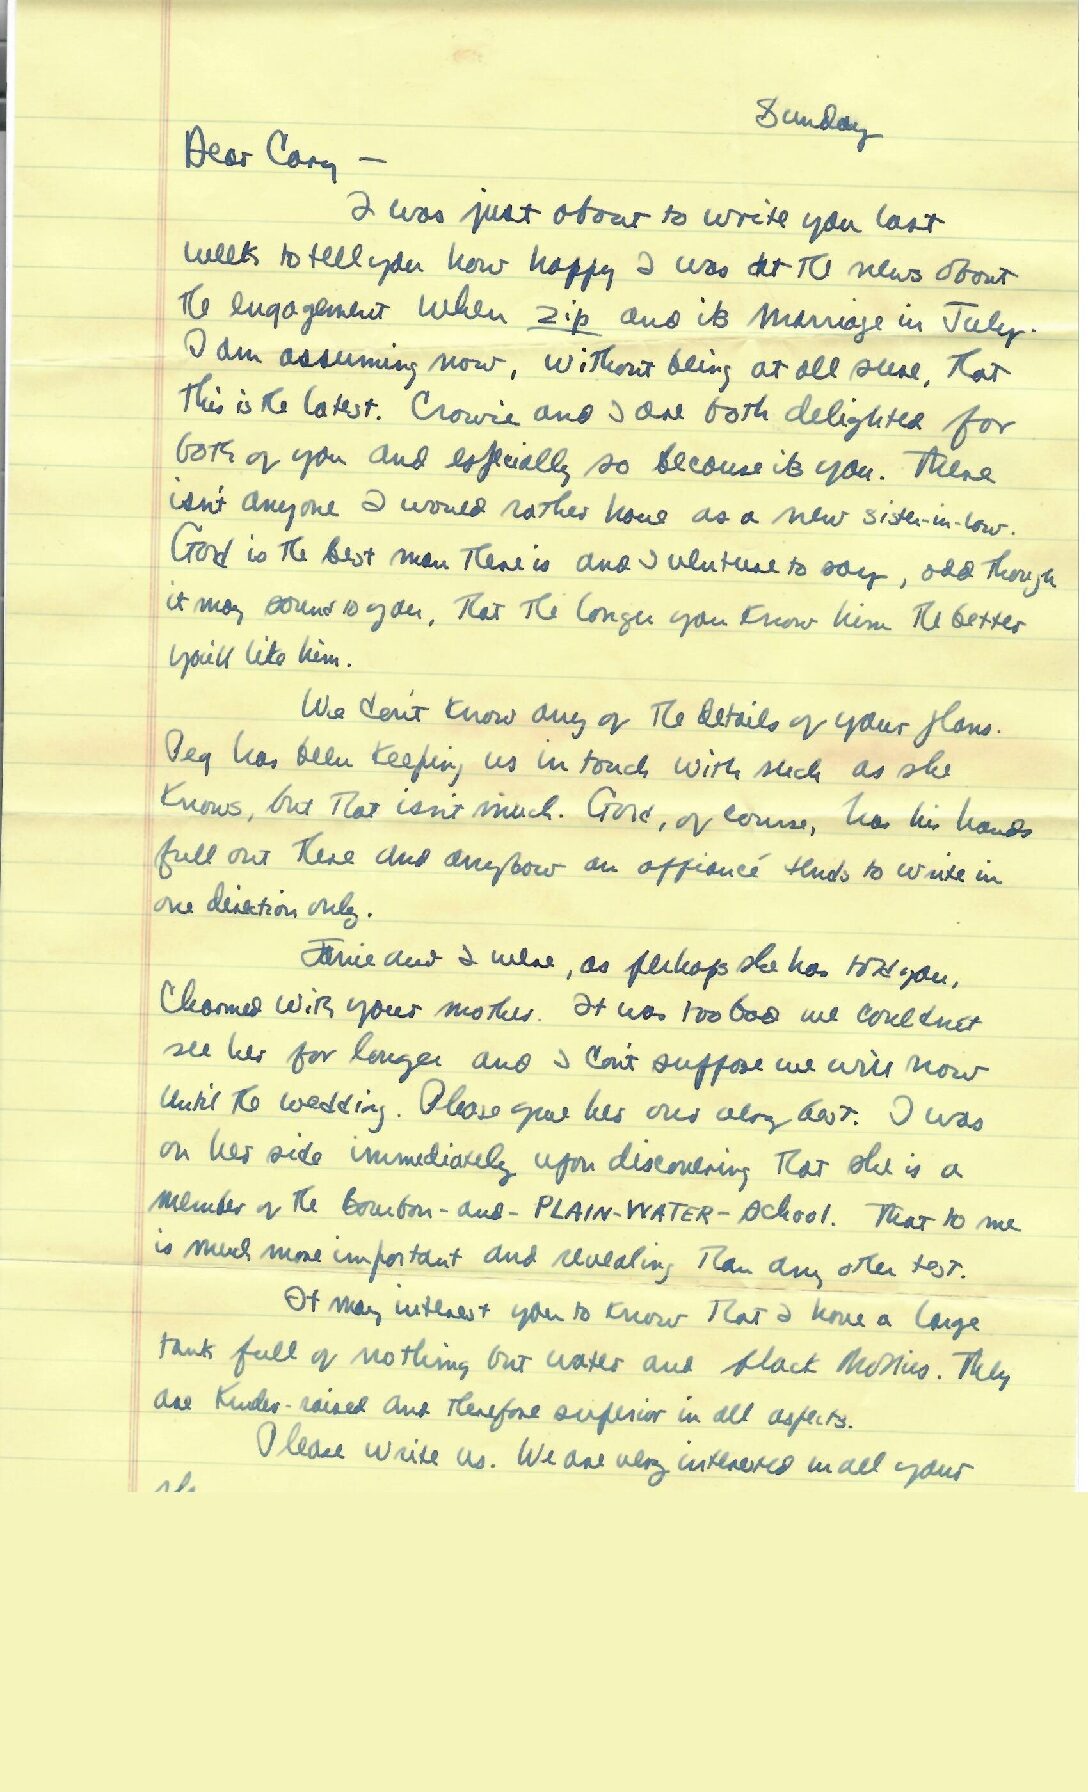 Sunday
Dear Cary —
I was just about to write you last
week to tell you how happy I was at the news about
the engagement when zip and its marriage in July.
I am assuming now, without being at all sure, that
this is the latest. Crowie and I are both delighted for
both of you and especially so because its you. There
isn't anyone I would rather have as a new sister-in-law.
Gord is the best man there is and I venture to say, odd though
it may sound to you, that the longer you know him the better
you'll like him.
We don't know any of the details of your plans.
Peg has been keeping us in touch with such as she
knows, but that isn't much. Gord, of course, has his hands
full out there and anyhow an affiancé tends to write in
one direction only.
and I were, as perhaps she has told you,
charmed with your mother. It was too bad we couldnt
see her for longer and I don't suppose we will now
until the wedding. Please give her our very best. I was
on her side immediately upon discovering that she is a
member of the bourbon-and-PLAIN-WATER-School. That to me
is much more important and revealing than any other test.
It may interest you to know that I have a large
tank full of nothing but water and black Mollies. They
are Kinder-raised and therefore superior in all aspects.
Please write us. We are very interested in all your